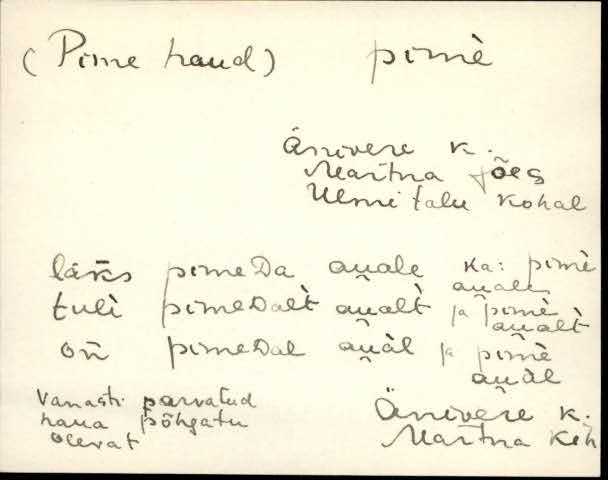 (Pime haud) pimè
Änivere k.
Martna jões
Uemi talu kohal
läks pimeDa aũale ka: pimè aũale
tuli pimeDalt̀ aũalt̀ ja pimè aũalt
on̄ pimeDal aũàl ja pimè aũàl
Vanasti parvatud
haua põhgatu
olevat
Änivere k.
Martna kih